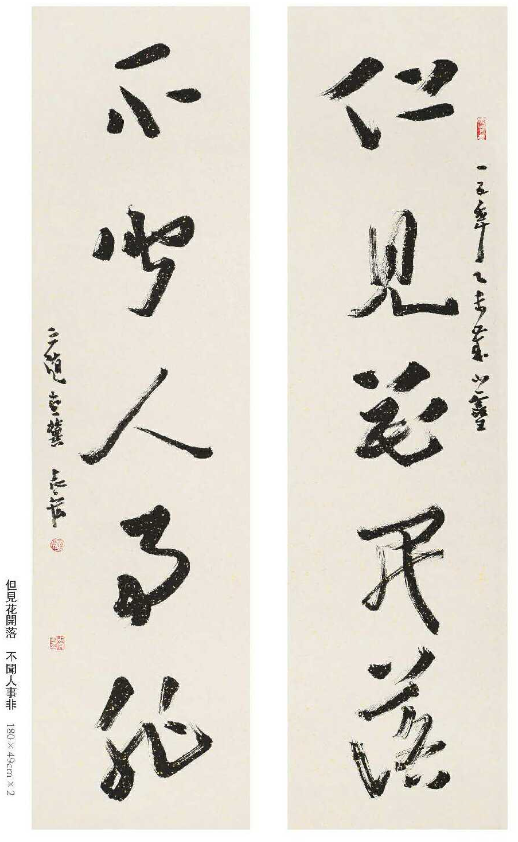 但見花開落
一五年乙未歲
不聞人事非
但見花開落 不聞人事非 180×49cm×2